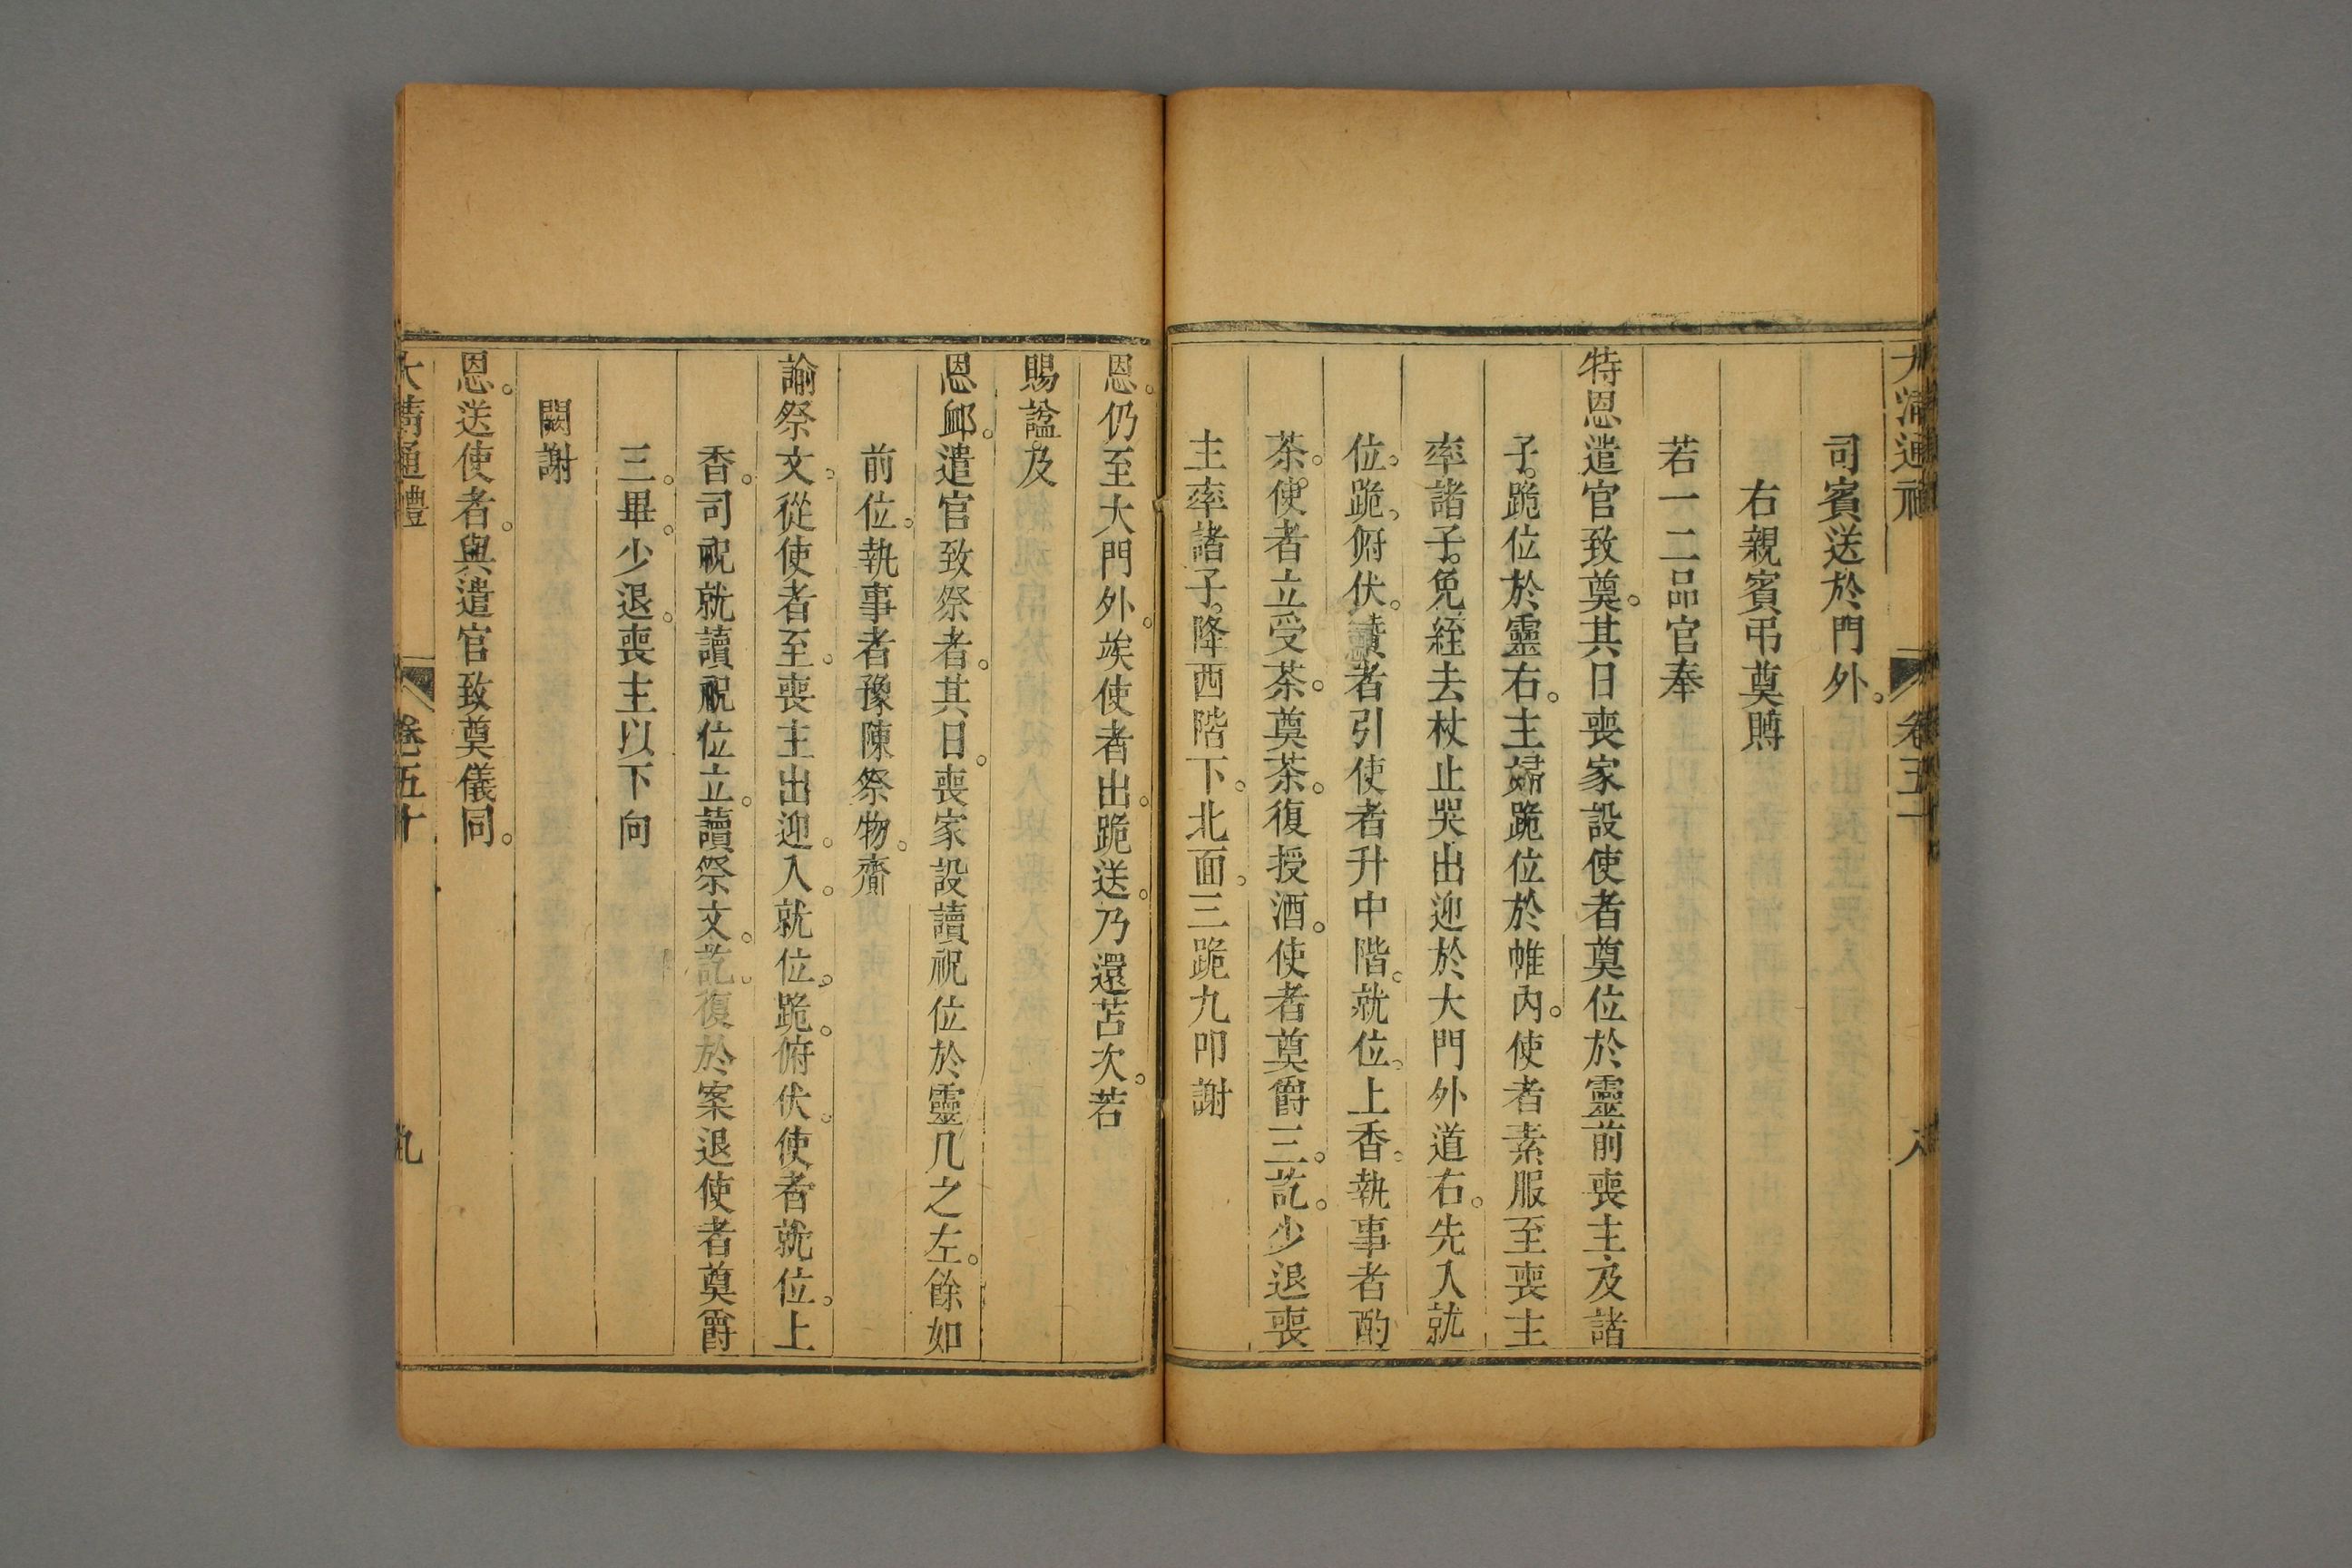 大清通禮 卷五十 八
司賓送於門外。
右親賓弔奠賻
若一二品官奉
特恩遣官致奠。其日喪家設使者奠位於靈前喪主及諸
子。跪位於靈右。主婦跪位於帷內。使者素服至喪主
率諸子。免絰去杖止哭出迎於大門外道右。先入就
位。跪。俯伏。贊者引使者升中階。就位。上香。執事者酌
茶。使者立受茶。奠茶。復授酒。使者奠爵三。訖。少退喪
主率諸子。降西階下。北面。三跪九叩謝
恩。仍至大門外。竢使者出。跪送。乃還苫次。若
賜諡。及
恩卹。遣官致祭者。其日。喪家設讀祝位於靈几之左。餘如
前位。執事者豫陳祭物。齋
諭祭文。從使者至。喪主出迎。入。就位。跪。俯伏。使者就位。上
香。司祝就讀祝位立。讀祭文。訖。復於案退使者奠爵
三。畢。少退。喪主以下向
闕謝
恩。送使者。與遣官致奠儀同。
大清通禮 卷五十 九